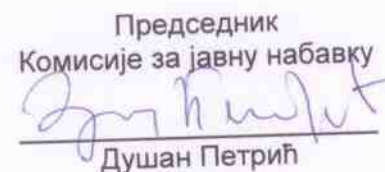 Председник
Комисије за јавну набавку
Душан Петрић